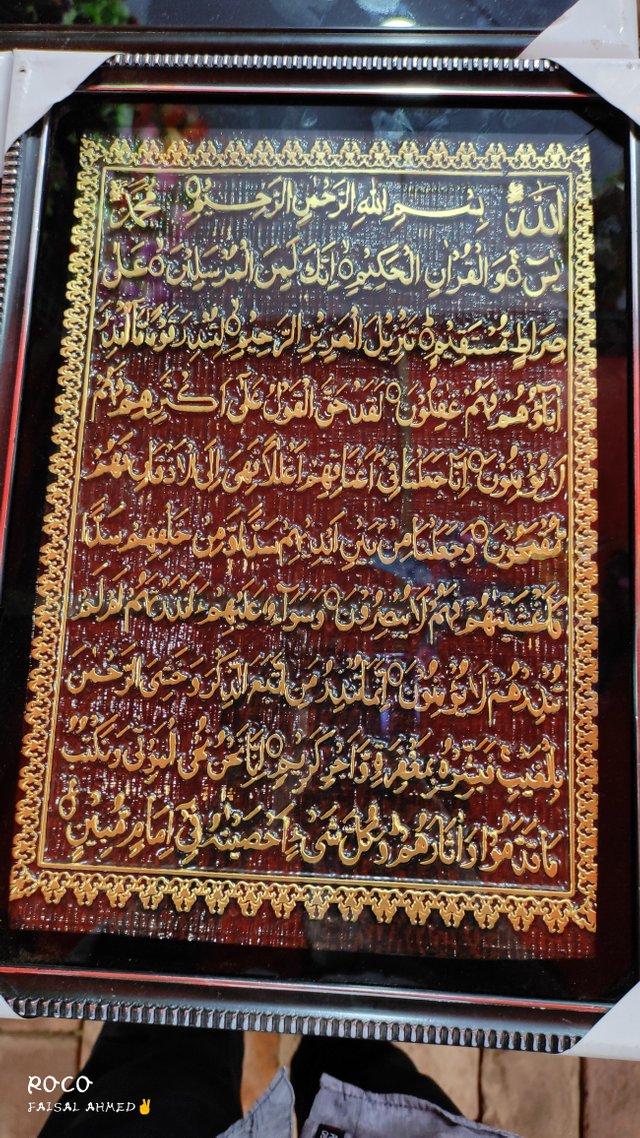 الله بِسْمِ اللهِ الرَّحْمٰنِ الرَّحِيْمِ محمد
يٰسٓ وَالْقُرْاٰنِ الْحَكِيْمِ اِنَّكَ لَمِنَ الْمُرْسَلِيْنَ عَلٰى
صِرَاطٍ مُّسْتَقِيْمٍ تَنْزِيْلَ الْعَزِيْزِ الرَّحِيْمِ لِتُنْذِرَ قَوْمًا مَّآ اُنْذِرَ
اٰبَآؤُهُمْ فَهُمْ غٰفِلُوْنَ لَقَدْ حَقَّ الْقَوْلُ عَلٰٓى اَكْثَرِهِمْ فَهُمْ
لَا يُؤْمِنُوْنَ اِنَّا جَعَلْنَا فِيْٓ اَعْنَاقِهِمْ اَغْلٰلًا فَهِيَ اِلَى الْاَذْقَانِ فَهُمْ
مُّقْمَحُوْنَ وَجَعَلْنَا مِنْۢ بَيْنِ اَيْدِيْهِمْ سَدًّا وَّمِنْ خَلْفِهِمْ سَدًّا
فَاَغْشَيْنٰهُمْ فَهُمْ لَا يُبْصِرُوْنَ وَسَوَآءٌ عَلَيْهِمْ ءَاَنْذَرْتَهُمْ اَمْ لَمْ
تُنْذِرْهُمْ لَا يُؤْمِنُوْنَ اِنَّمَا تُنْذِرُ مَنِ اتَّبَعَ الذِّكْرَ وَخَشِيَ الرَّحْمٰنَ
بِالْغَيْبِ فَبَشِّرْهُ بِمَغْفِرَةٍ وَّاَجْرٍ كَرِيْمٍ اِنَّا نَحْنُ نُحْيِ الْمَوْتٰى وَنَكْتُبُ
مَا قَدَّمُوْا وَاٰثَارَهُمْ وَكُلَّ شَيْءٍ اَحْصَيْنٰهُ فِيْٓ اِمَامٍ مُّبِيْنٍ
ROCO
FAISAL AHMED✌